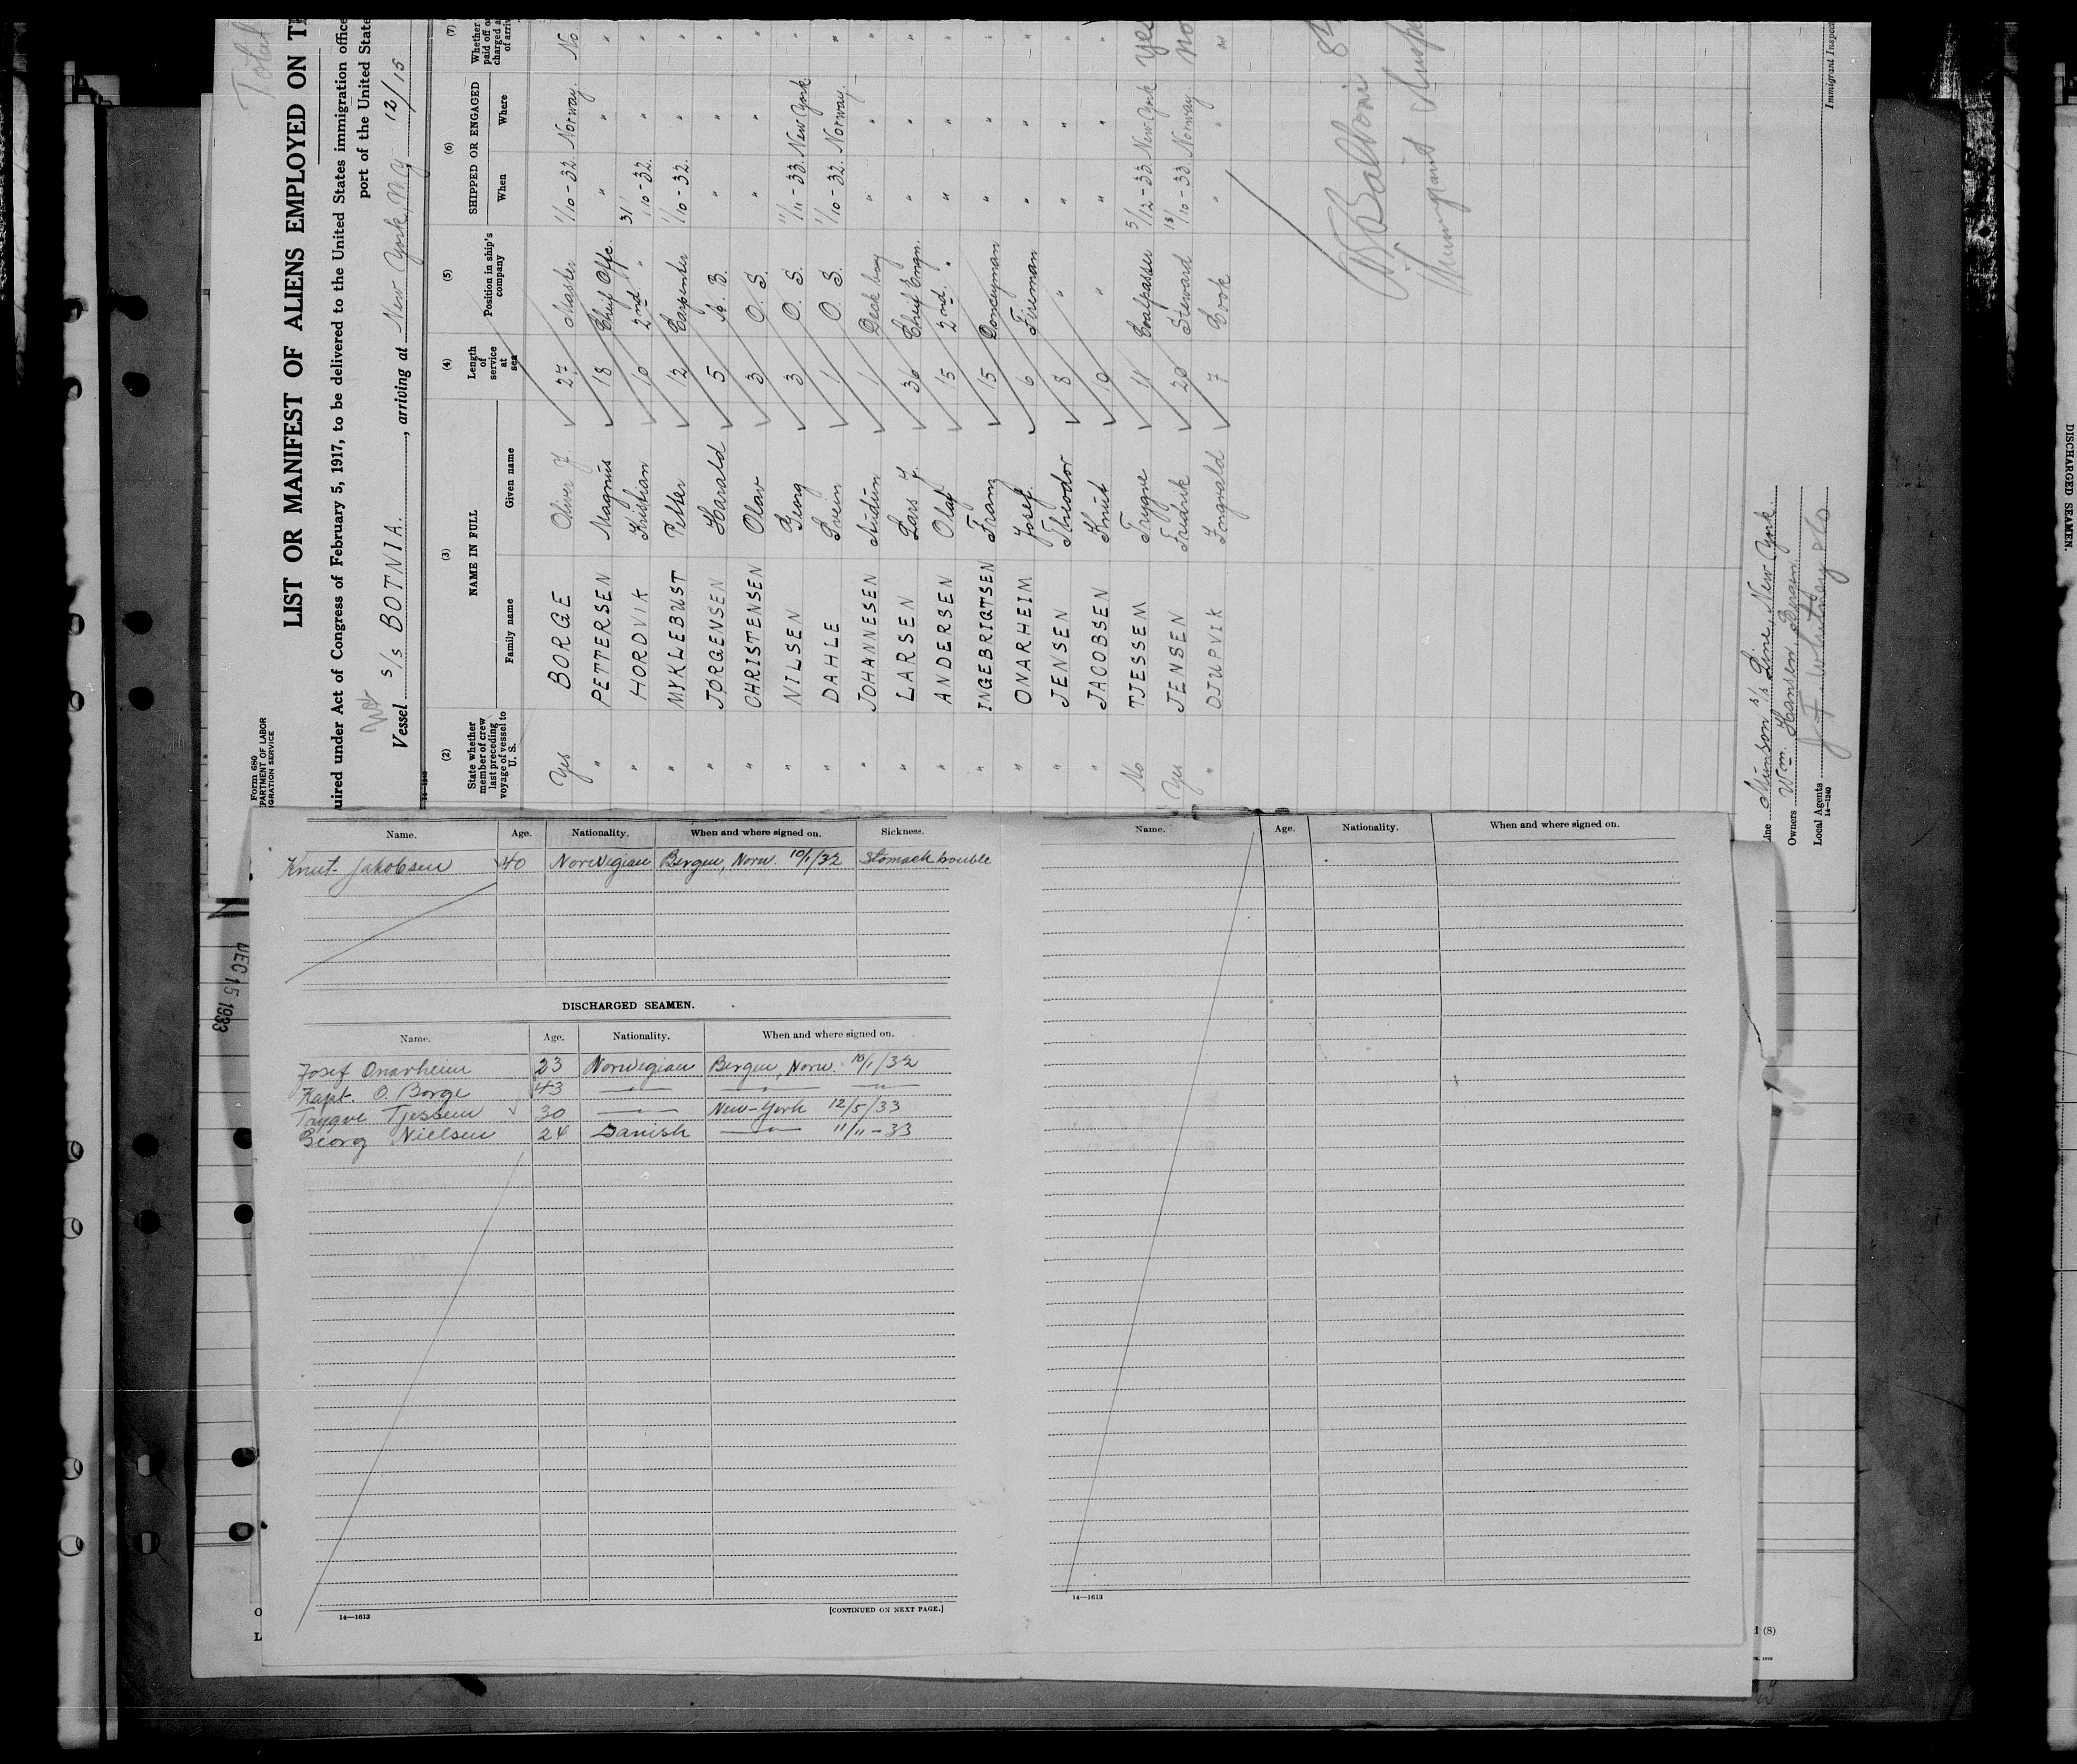 Total
LIST OR MANIFEST OF ALIENS EMPLOYED ON
Form 680
PARTMENT OF LABOR
IGRATION SERVICE
uired under Act of Congress of February 5, 1917, to be delivered to the United States immigration office
port of the United State
Vessel S/S BOTNIA. , arriving at New York, N.Y 12/15
14-1240
(2) (3) (4) (5) (6) (7)
State whether member of crew last preceding voyage of vessel to U. S. NAME IN FULL Length of service at sea Position in ship's company SHIPPED OR ENGAGED Whether paid off
Family name Given name When Where
Yes BORGE Oliver J. 27 Master 1/10-32. Norway. No
" PETTERSEN Magnus 18 Chief Offc. " " "
" HORDVIK Kristian 10 2nd " 31/10-32. " "
" MYKLEBUST Petter 12 Carpenter 1/10-32. " "
" JØRGENSEN Harald 5 A. B. " " "
" CHRISTENSEN Olav 3 O. S. " " "
" NILSEN Georg 3 O. S. 11/11-33. New York "
" DAHLE Svein 1 O. S. 1/10-32. Norway. "
" JOHANNESEN Audun 1 Deck boy " " "
" LARSEN Lars J. 36 Chief Engn. " " "
" ANDERSEN Olaf 15 2nd. " " " "
" INGEBRIGTSEN Franz 15 Donkeyman " " "
" ONARHEIM Josef. 6 Fireman " " "
" JENSEN Theodor 8 " " " "
" JACOBSEN Knut 10 " " " "
No TJESSEM Trygve 11 Coalpasser 5/12-33. New York Yes
Yes JENSEN Fredrik 20 Steward 18/10-33 Norway. No
" DJUPVIK Ingvald 7 Cook " " "
Immigrant Inspe
Line Munson S/S Line, New York
Owners Wm. Hansen Bergen
Local Agents J. F. Whitney & Co
14-1240
Immigrant Inspec
Name. Age. Nationality. When and where signed on. Sickness.
Knut Jakobsen 40 Norwegian Bergen, Norw. 10/1/32 Stomach trouble
DISCHARGED SEAMEN.
Name. Age. Nationality. When and where signed on.
Josef Onarheim 23 Norwegian Bergen, Norw. 10/1/32
Kapt. O. Borge 43 " " "
Trygve Tjessem 30 " New-York 12/5/33
Georg Nielsen 24 Danish " 11/11-33
14—1613 [CONTINUED ON NEXT PAGE.]
Name. Age. Nationality. When and where signed on.
14—1613
DEC 15 1933
DISCHARGED SEAMEN.
(8)